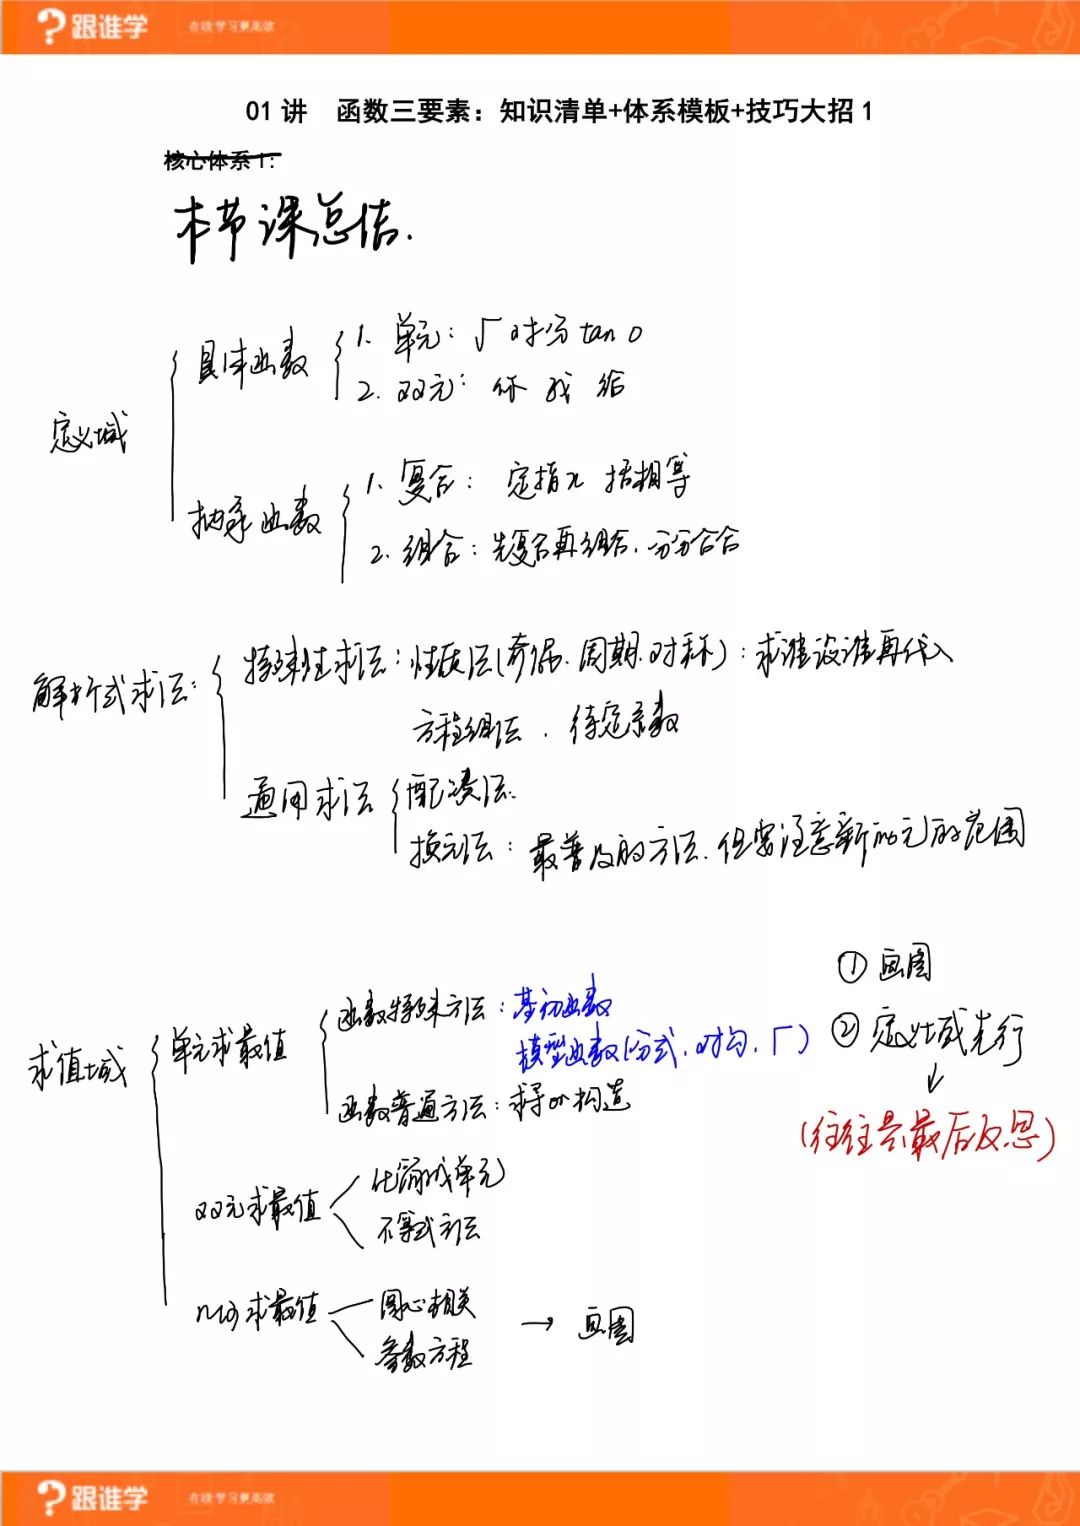 跟谁学 在线学习更高效
01 讲 函数三要素：知识清单+体系模板+技巧大招 1
核心体系 1:
本节课总结.
定义域
具体函数
1. 单元: √ 对分 tan 0
2. 双元: 你 我 给
抽象函数
1. 复合: 定指x 括相等
2. 组合: 先复合再组合. 分分合合
解析式求法:
特殊性求法: 性质法(奇偶. 周期. 对称): 求谁设谁再代入
方程组法. 待定系数
通用求法
配凑法.
换元法: 最普及的方法. 但要注意新的元的范围
① 画图
② 定义域先行
↓
(往往是最后反思)
求值域
单元求最值
函数特殊方法: 基初函数
模型函数(分式. 对勾. √)
函数普通方法: 求导or构造
双元求最值
化简成单元
不等式方法
求最值
圆心相关
参数方程
→ 画图
跟谁学 在线学习更高效